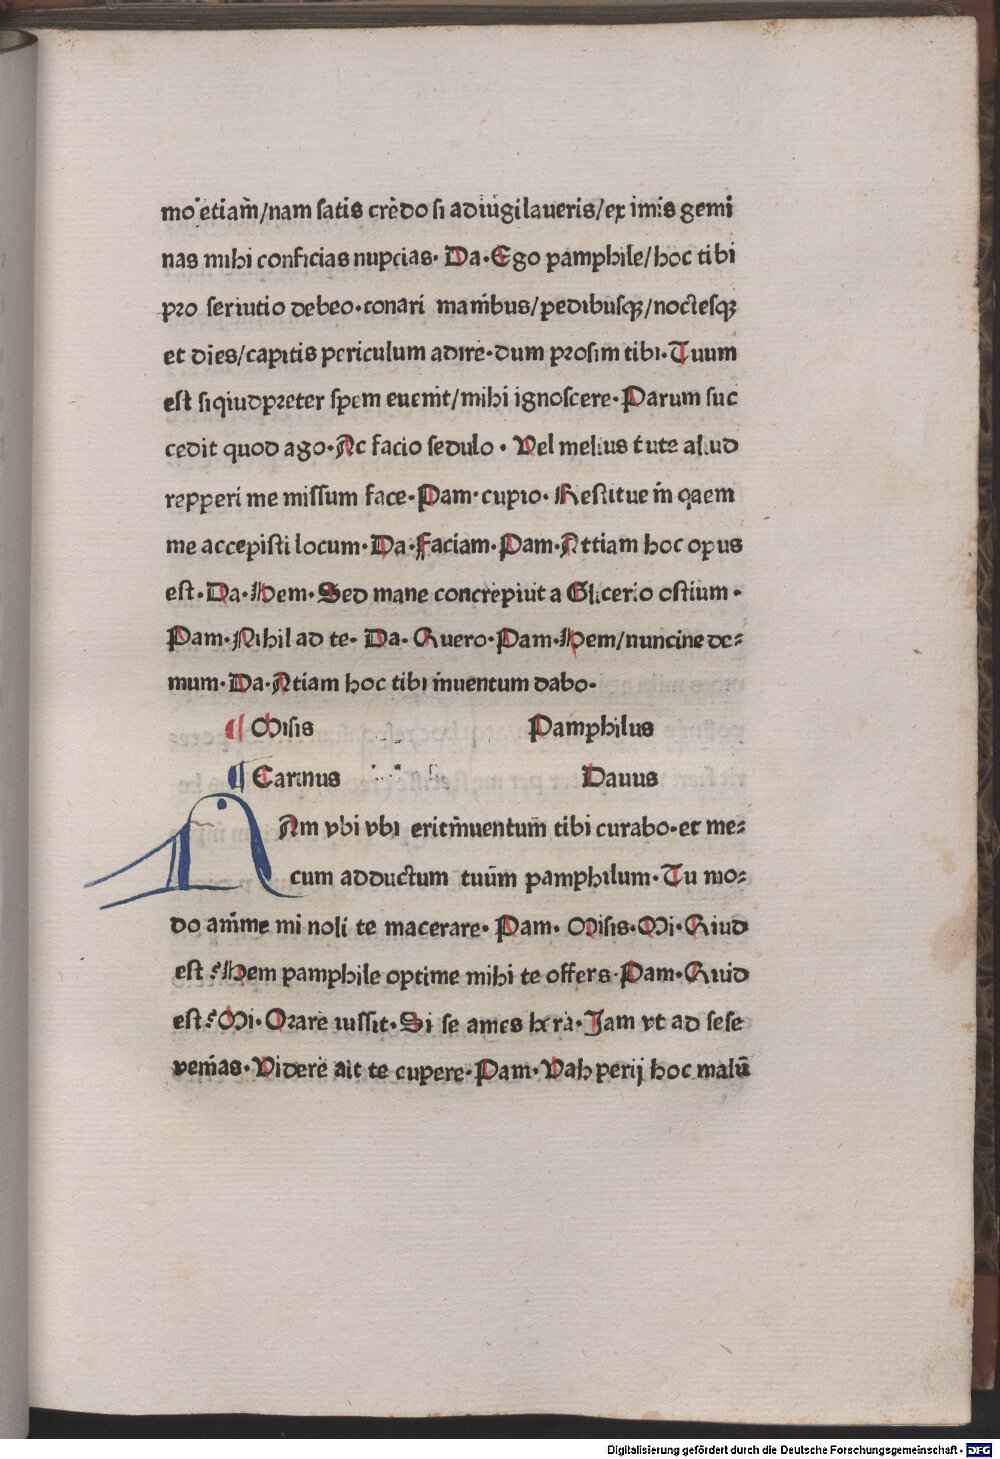 mo etiam̄/nam satis credo si aduigilaueris/ex imis gemi
nas mihi conficias nupcias· Da·Ego pamphile/hoc tibi
pro seruitio debeo·conari manibus/pedibusqꝫ/noctesqꝫ
et dies/capitis periculum adire·dum prosim tibi·Tuum
est siqiudpreter spem euenit/mihi ignoscere·Parum suc
cedit quod ago·Ac facio sedulo· Vel melius tute aliud
repperi me missum face·Pam·cupio· Restitue in qaem
me accepisti locum·Da·Faciam·Pam·Attiam hoc opus
est·Da·Hem·Sed mane concrepiut a Glicerio ostium·
Pam·Nihil ad te· Da· Quero·Pam·Hem/nuncine de⸗
mum·Da·Atiam hoc tibi inuentum dabo·
¶ Misis Pamphilus
¶ Carinus Dauus
NAm vbi vbi erit inuentum̄ tibi curabo·et me⸗
cum adductum tuūm pamphilum·Tu mo⸗
do anime mi noli te macerare· Pam· Misis·Mi·Qiud
est? Hem pamphile optime mihi te offers·Pam·Quid
est? Mi·Orare iussit·Si se ames hera·Jam vt ad sese
venias·Videre ait te cupere·Pam·Vah perij hoc malū
Digitalisierung gefördert durch die Deutsche Forschungsgemeinschaft - DFG